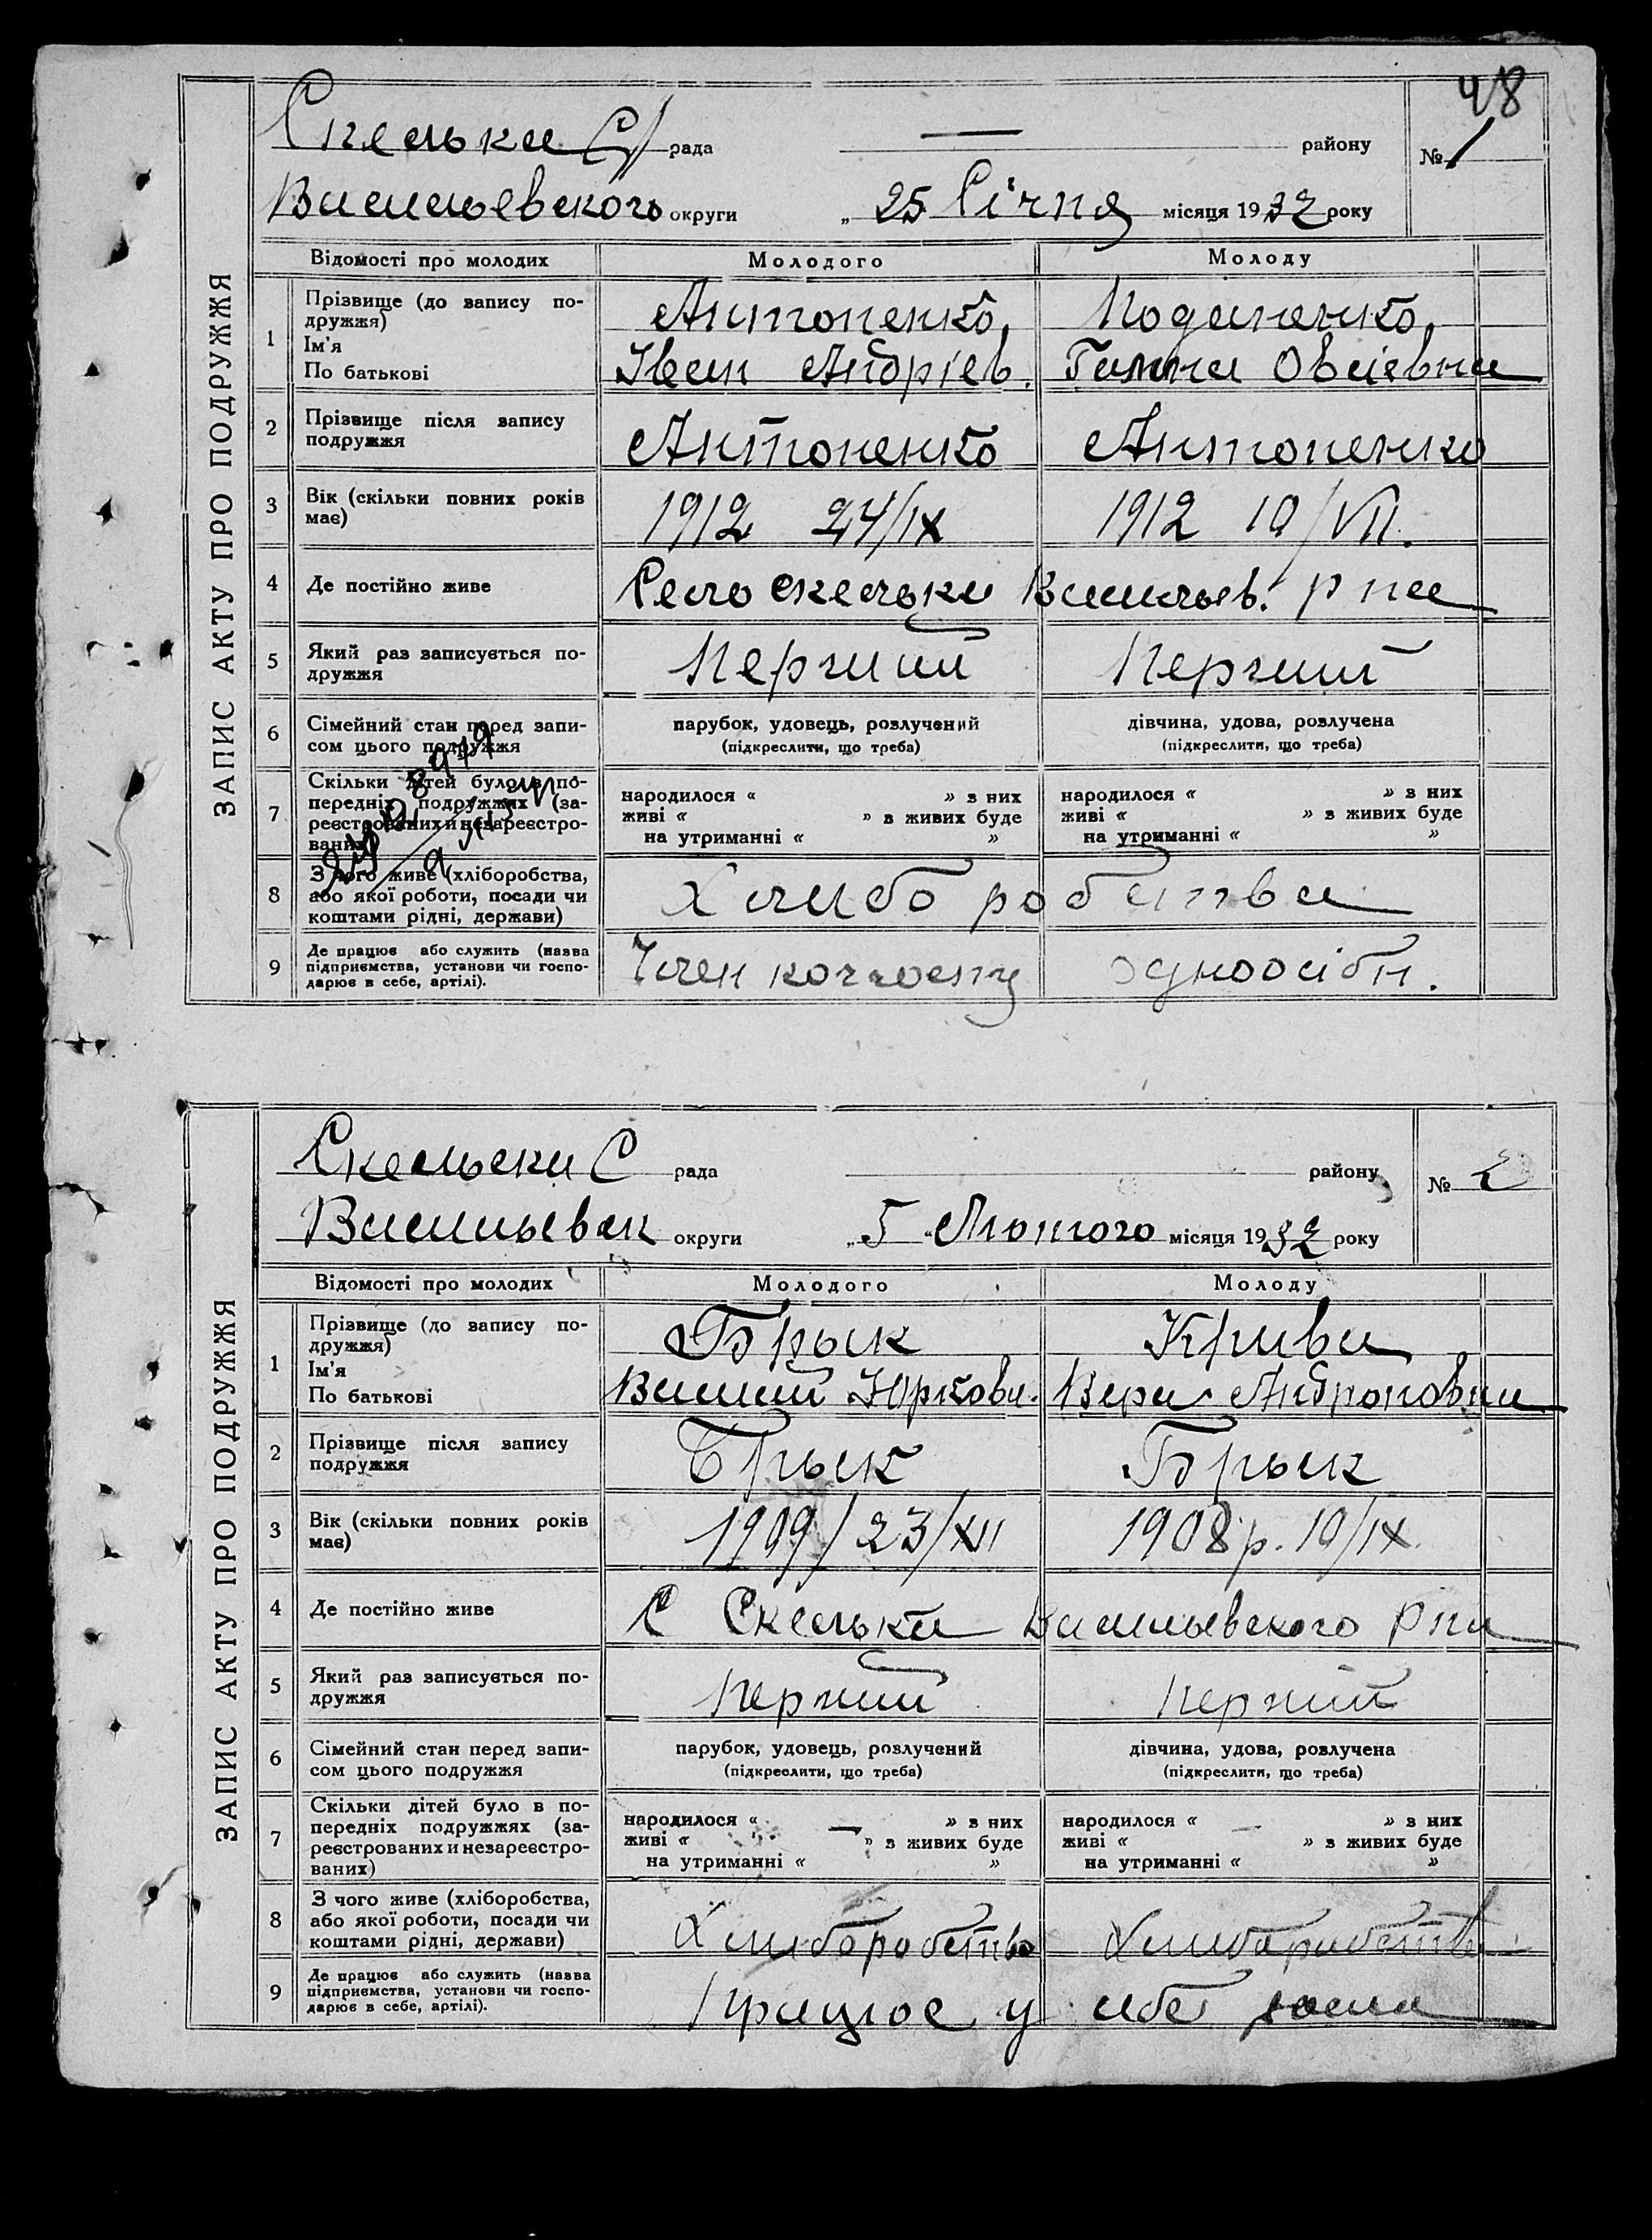 48
Скельки С/ рада — району № 1
Васильевского округи „ 25 Січня місяця 1932 року
ЗАПИС АКТУ ПРО ПОДРУЖЖЯ
Відомості про молодих Молодого Молоду
1 Прізвище (до запису по-
дружжя)
Ім'я
По батькові
Антоненко,
Іван Андріев.
Галина Овсіевна
2 Прізвище після запису
подружжя
Антоненко Антоненко
3 Вік (скільки повних років
має)
1912 24/IX 1912 10/VII.
4 Де постійно живе Село Скельки Васильев. р на
5 Який раз записується по-
дружжя
Перший Перший
6 Сімейний стан перед запи-
сом цього подружжя
парубок, удовець, розлучений
(підкреслити, що треба)
дівчина, удова, розлучена
(підкреслити, що треба)
7 Скільки дітей було в по-
передніх подружжях (за-
реєстрованих и незареєстро-
ваних)
народилося « » з них
живі « » з живих буде
на утриманні « »
народилося « » з них
живі « » з живих буде
на утриманні « »
8 З чого живе (хліборобства,
або якої роботи, посади чи
коштами рідні, держави)
Хлиборобства
9 Де працює або служить (назва
підприємства, установи чи госпо-
дарює в себе, артілі).
Член колгоспу одноосібн.
Скельски С рада району № 2
Васильевск округи „ 5 “ Лютого місяця 1932 року
ЗАПИС АКТУ ПРО ПОДРУЖЖЯ
Відомості про молодих Молодого Молоду
1 Прізвище (до запису по-
дружжя)
Ім'я
По батькові
Брык Крива
Василий Юркови. Вера Андроновна
2 Прізвище після запису
подружжя
Брык Брык
3 Вік (скільки повних років
має)
1909/23/XII 1908 р. 10/IX.
4 Де постійно живе С Скельки Васильевского р на
5 Який раз записується по-
дружжя
Перший Перший
6 Сімейний стан перед запи-
сом цього подружжя
парубок, удовець, розлучений
(підкреслити, що треба)
дівчина, удова, розлучена
(підкреслити, що треба)
7 Скільки дітей було в по-
передніх подружжях (за-
реєстрованих и незареєстро-
ваних)
народилося « — » з них
живі « » з живих буде
на утриманні « »
народилося « — » з них
живі « » з живих буде
на утриманні « »
8 З чого живе (хліборобства,
або якої роботи, посади чи
коштами рідні, держави)
Хлиборобства Хлиборобства
9 Де працює або служить (назва
підприємства, установи чи госпо-
дарює в себе, артілі).
Працюе у